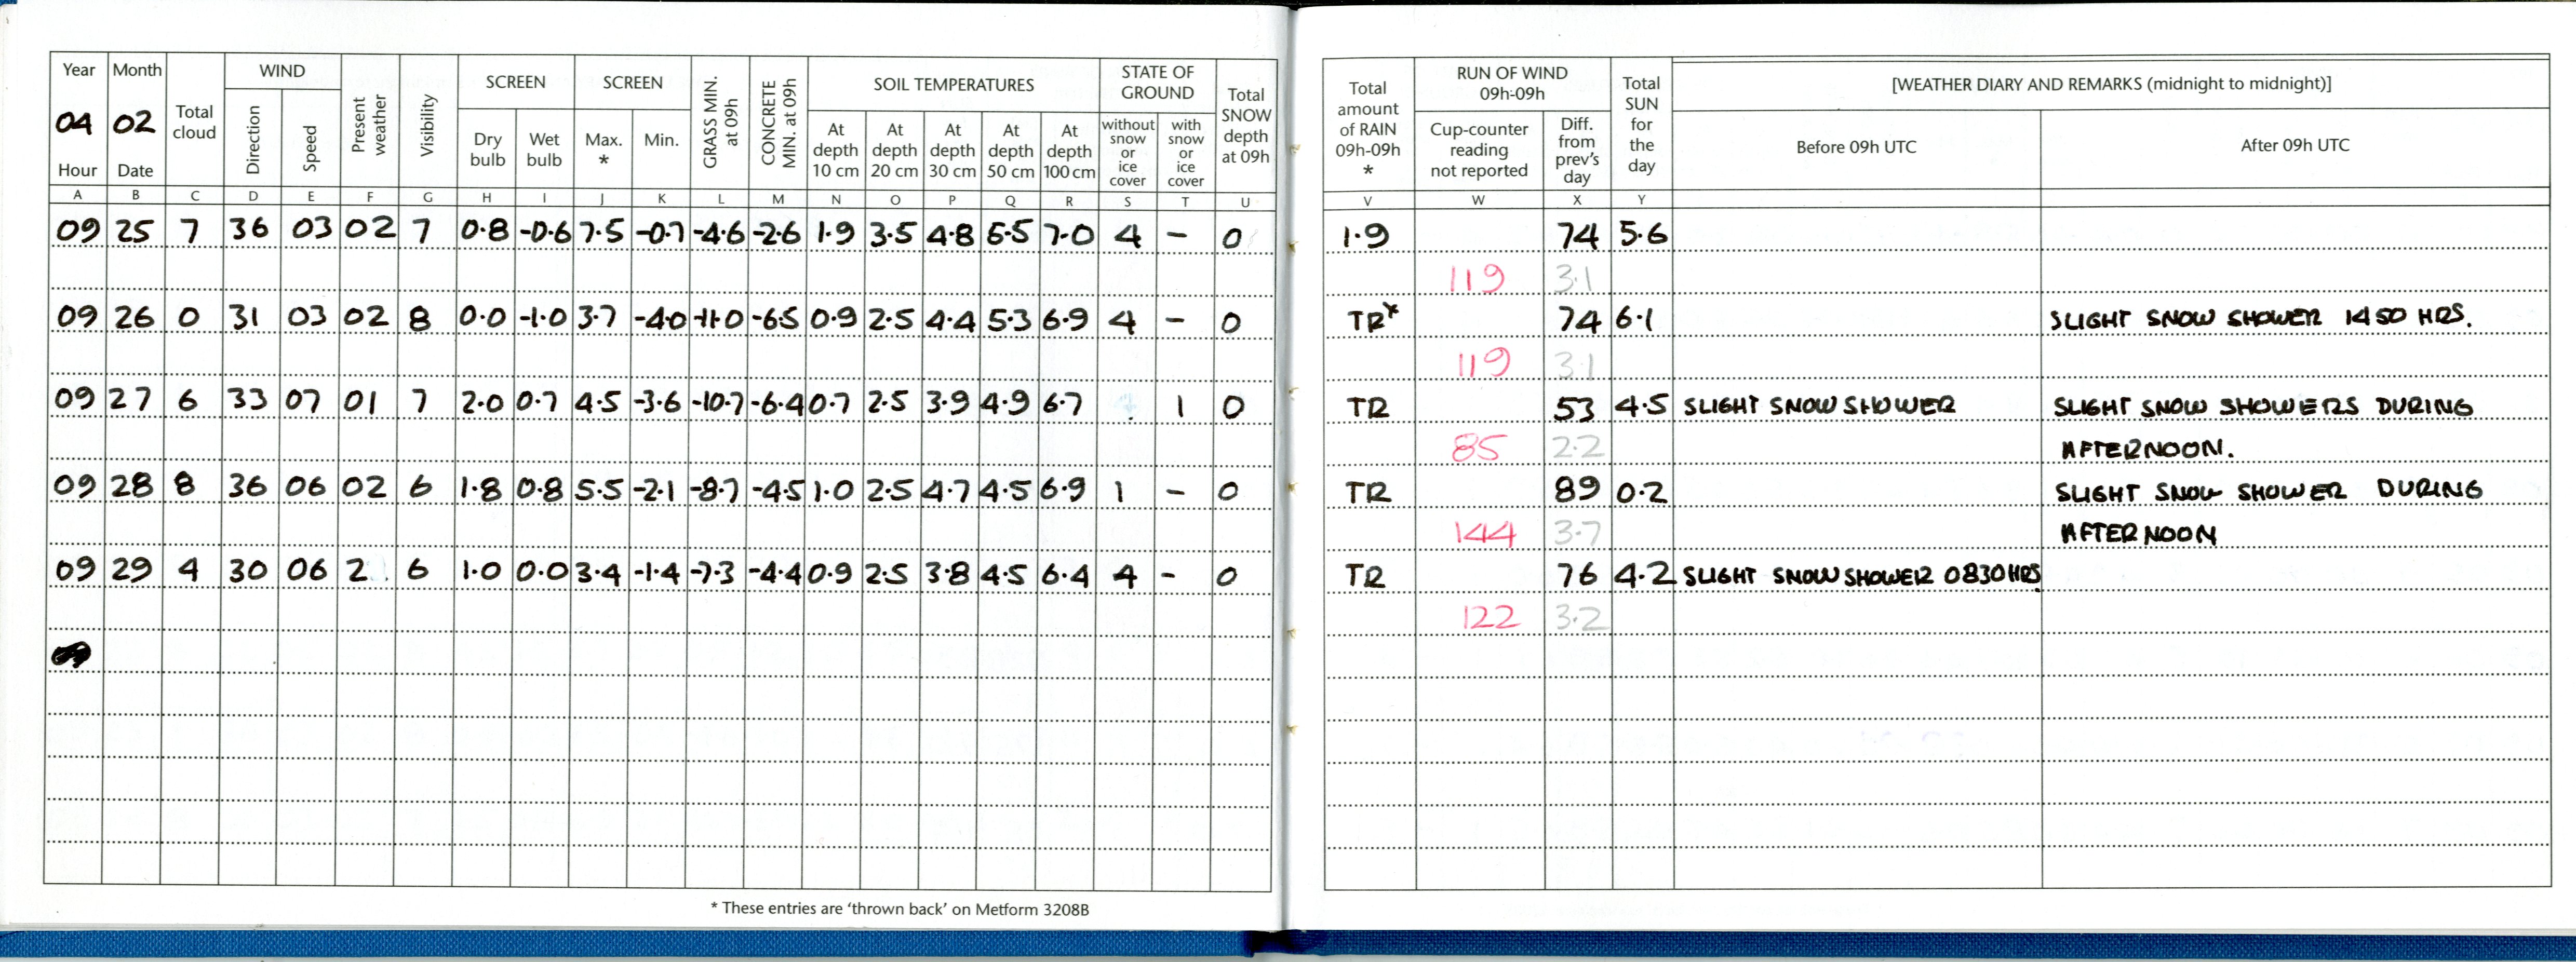 Year Month Total cloud WIND Present weather Visibility SCREEN SCREEN GRASS MIN. at 09h CONCRETE MIN. at 09h SOIL TEMPERATURES STATE OF GROUND Total SNOW depth at 09h
04 02 Direction Speed Dry bulb Wet bulb Max. * Min. At depth 10 cm At depth 20 cm At depth 30 cm At depth 50 cm At depth 100 cm without snow or ice cover with snow or ice cover
Hour Date
A B C D E F G H I J K L M N O P Q R S T U
09 25 7 36 03 02 7 0.8 -0.6 7.5 -0.7 -4.6 -2.6 1.9 3.5 4.8 5.5 7.0 4 - 0
09 26 0 31 03 02 8 0.0 -1.0 3.7 -4.0 -11.0 -6.5 0.9 2.5 4.4 5.3 6.9 4 - 0
09 27 6 33 07 01 7 2.0 0.7 4.5 -3.6 -10.7 -6.4 0.7 2.5 3.9 4.9 6.7 1 0
09 28 8 36 06 02 6 1.8 0.8 5.5 -2.1 -8.7 -4.5 1.0 2.5 4.7 4.5 6.9 1 - 0
09 29 4 30 06 2 6 1.0 0.0 3.4 -1.4 -7.3 -4.4 0.9 2.5 3.8 4.5 6.4 4 - 0
* These entries are 'thrown back' on Metform 3208B
Total amount of RAIN 09h-09h * RUN OF WIND 09h-09h Total SUN for the day [WEATHER DIARY AND REMARKS (midnight to midnight)]
Cup-counter reading not reported Diff. from prev's day Before 09h UTC After 09h UTC
V W X Y
1.9 74 5.6
119 3.1
TR* 74 6.1 SLIGHT SNOW SHOWER 1450 HRS.
119 3.1
TR 53 4.5 SLIGHT SNOW SHOWER SLIGHT SNOW SHOWERS DURING
85 2.2 AFTERNOON.
TR 89 0.2 SLIGHT SNOW SHOWER DURING
144 3.7 AFTERNOON
TR 76 4.2 SLIGHT SNOW SHOWER 0830 HRS.
122 3.2